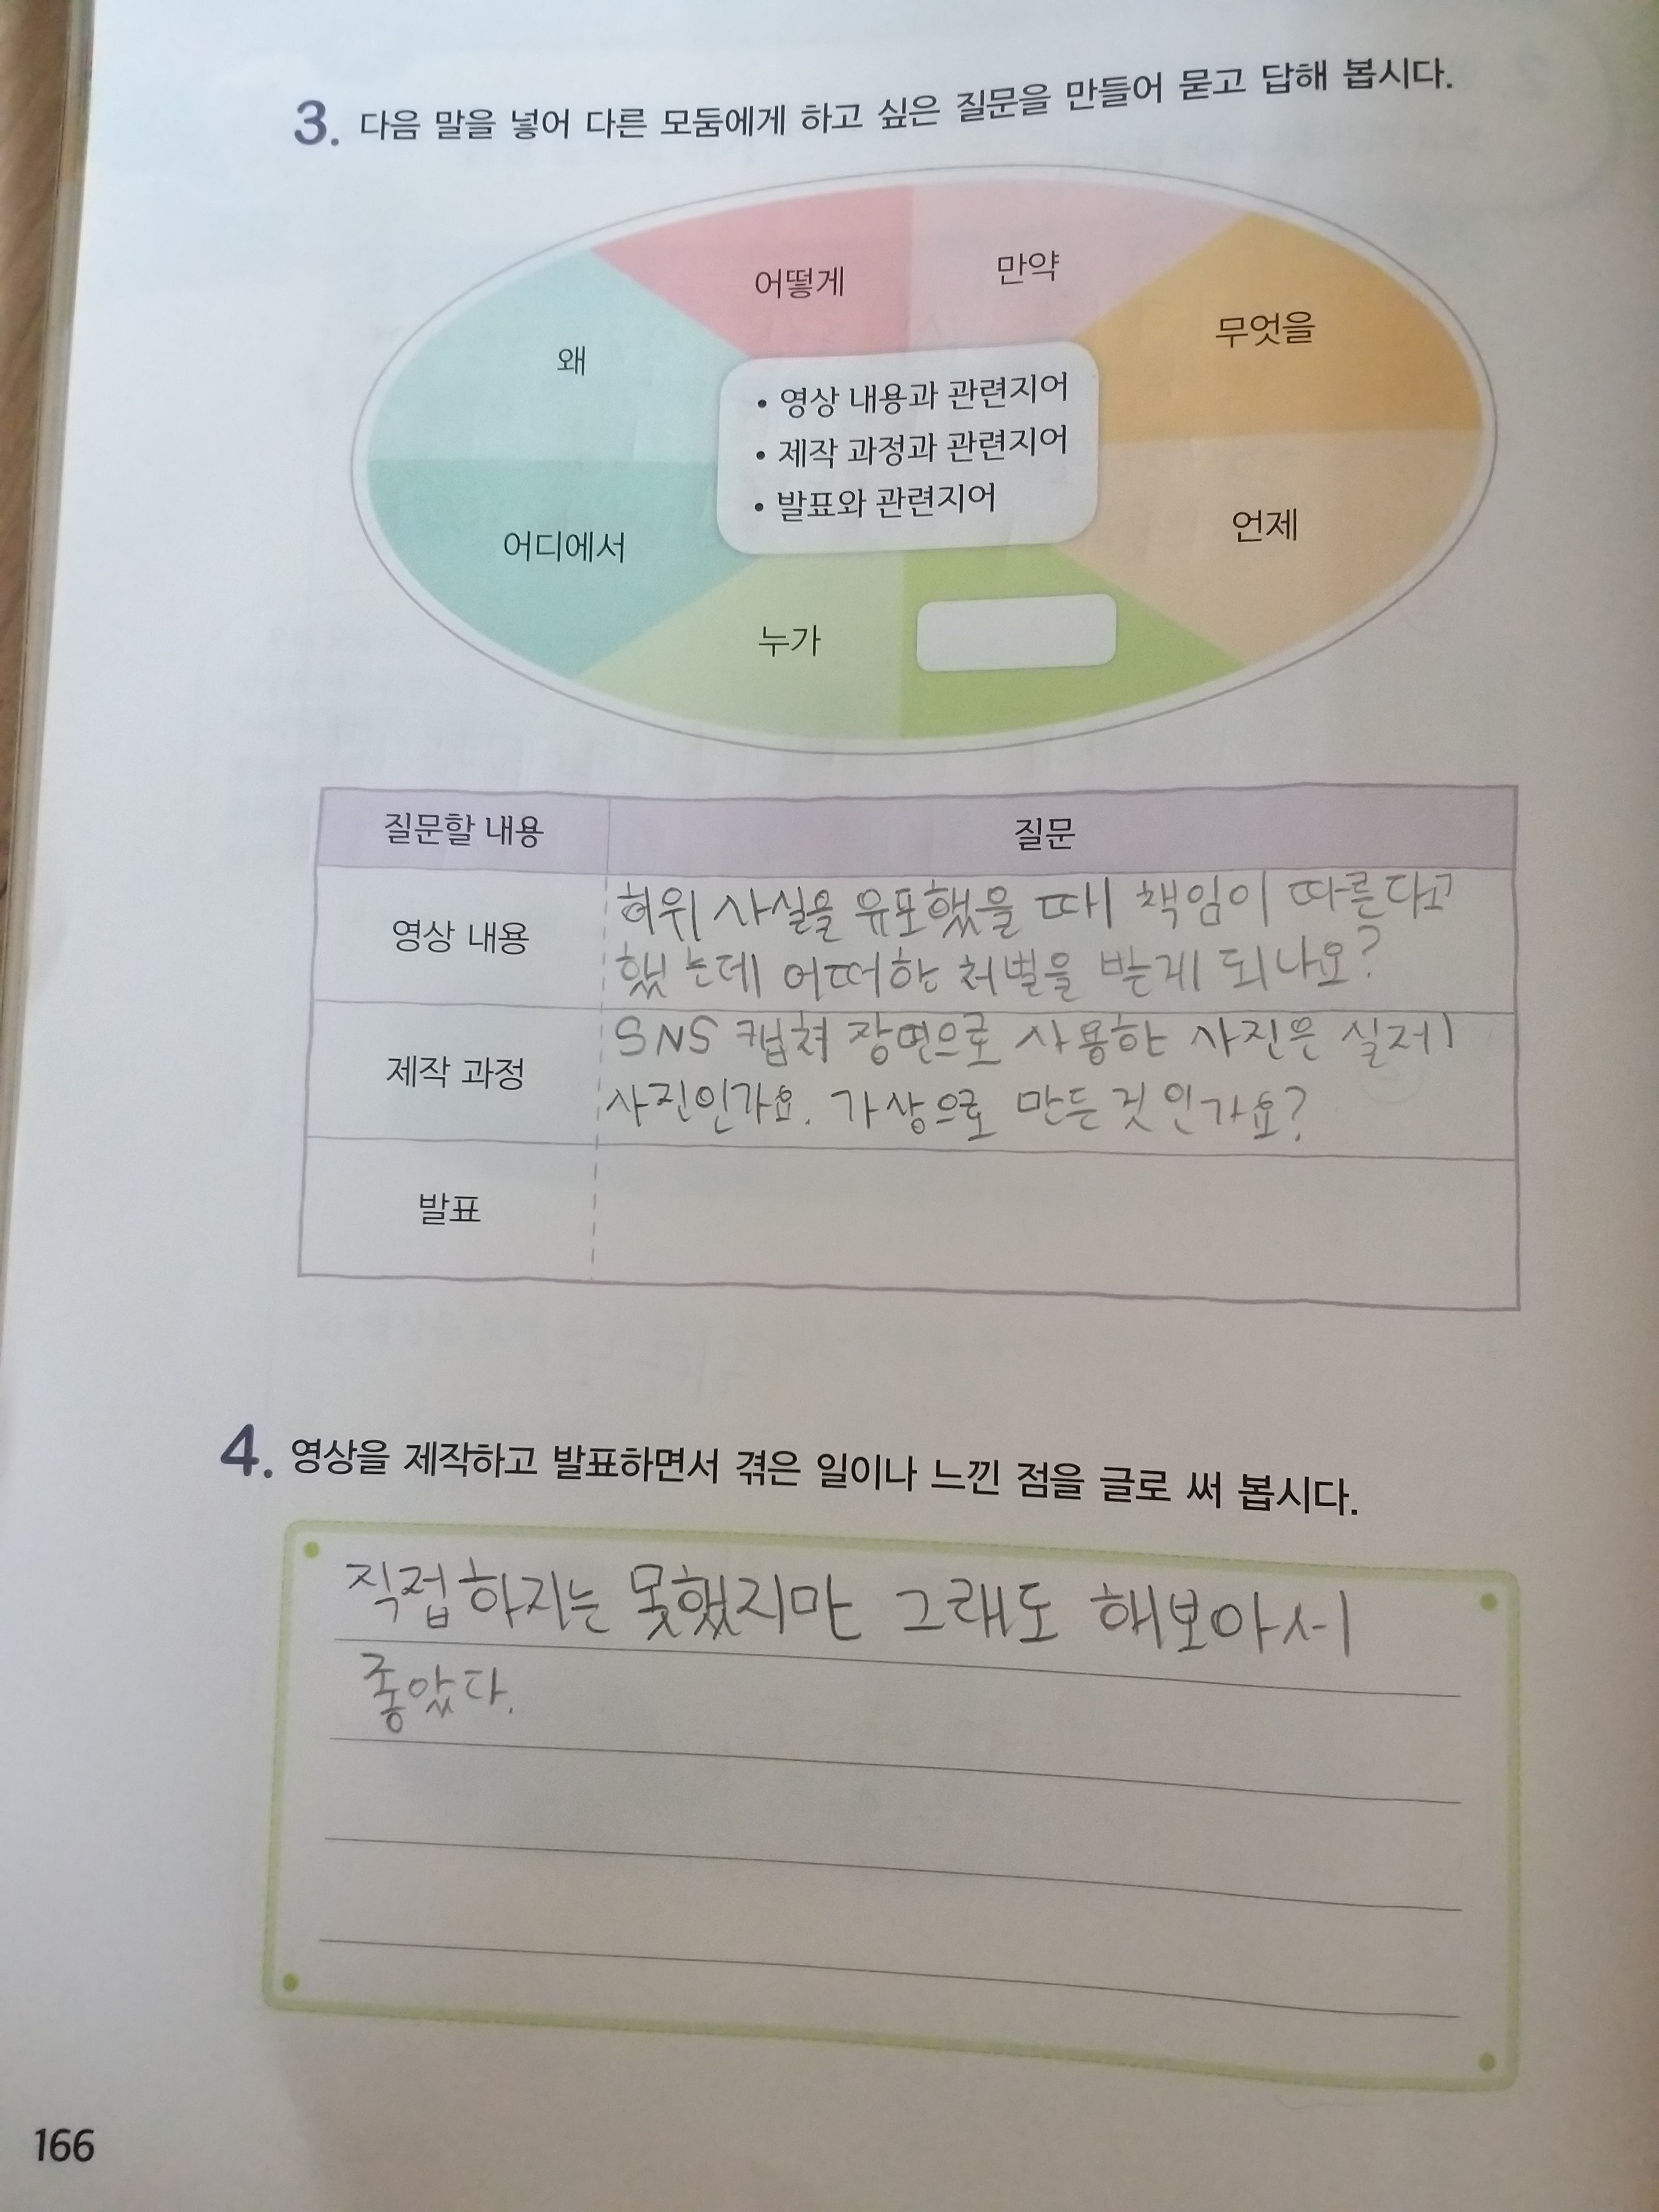 3. 다음 말을 넣어 다른 모둠에게 하고 싶은 질문을 만들어 묻고 답해 봅시다.
어떻게
만약
왜
무엇을
• 영상 내용과 관련지어
• 제작 과정과 관련지어
• 발표와 관련지어
어디에서
언제
누가
질문할 내용
질문
영상 내용
허위 사실을 유포했을 때 책임이 따른다고
했는데 어떠한 처벌을 받게 되나요?
제작 과정
SNS 캡쳐 장면으로 사용한 사진은 실제
사진인가요. 가상으로 만든 것인가요?
발표
4. 영상을 제작하고 발표하면서 겪은 일이나 느낀 점을 글로 써 봅시다.
직접 하지는 못했지만 그래도 해보아서
좋았다.
166